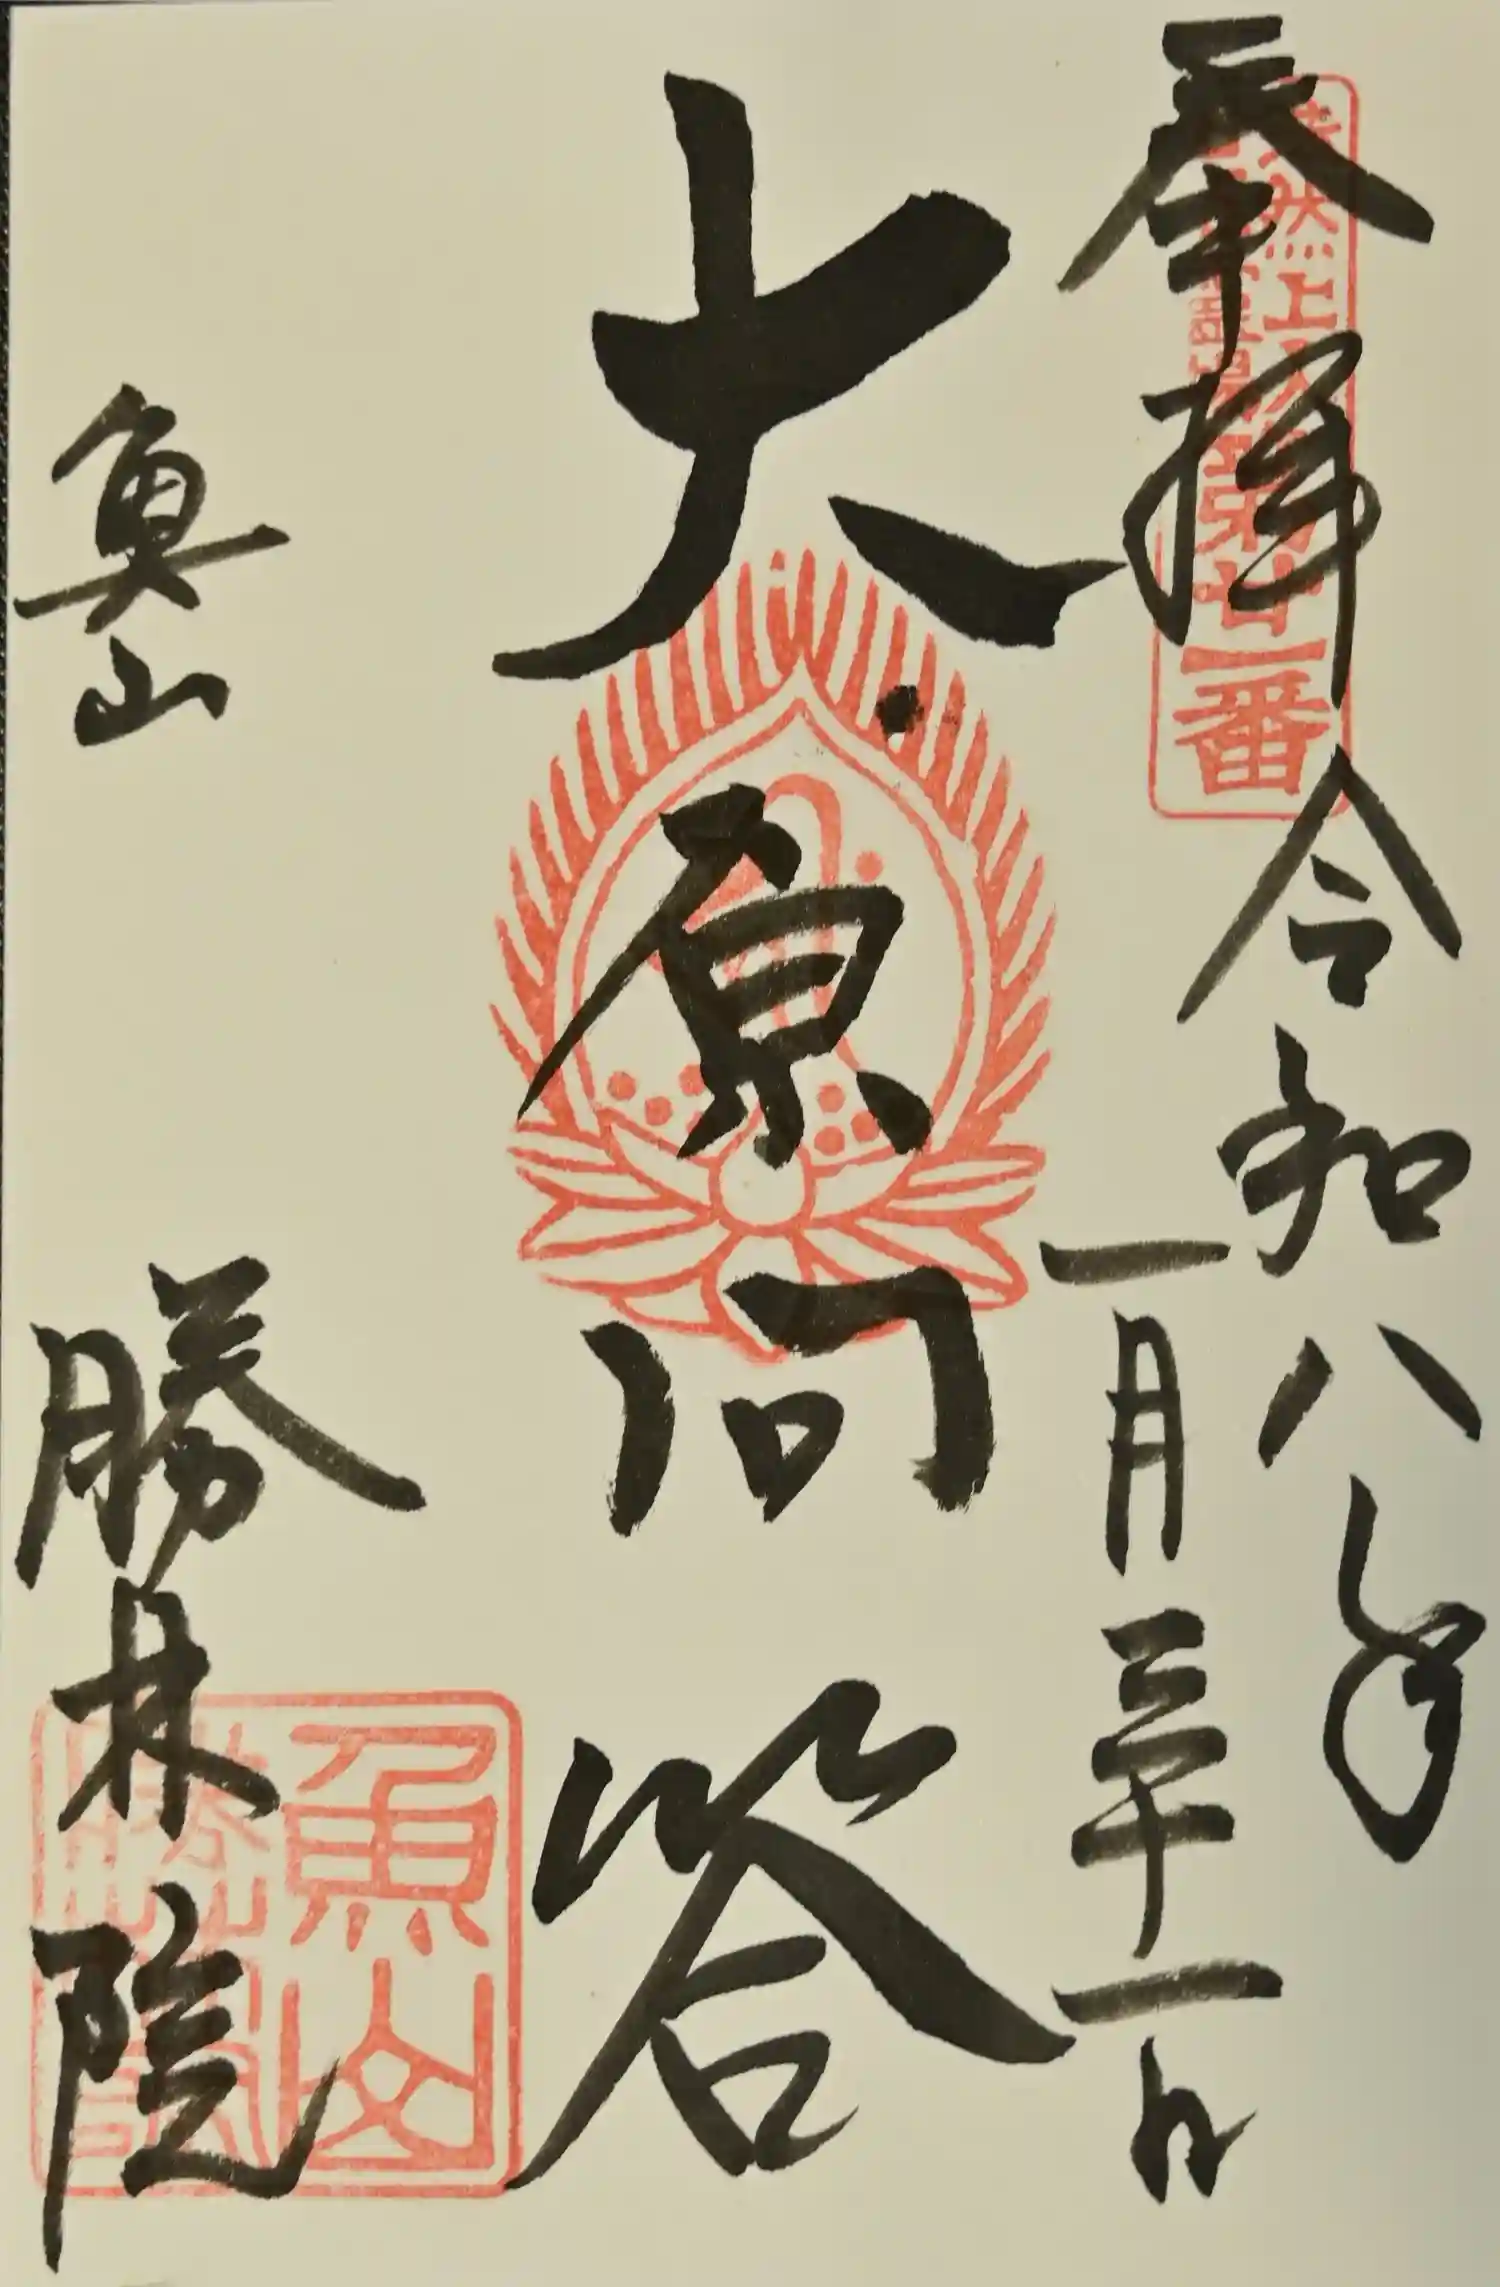 奉拝
令和八年
一月三十一日
大原問答
魚山
勝林院
法然上人
霊場第廿一番
魚山
勝林院